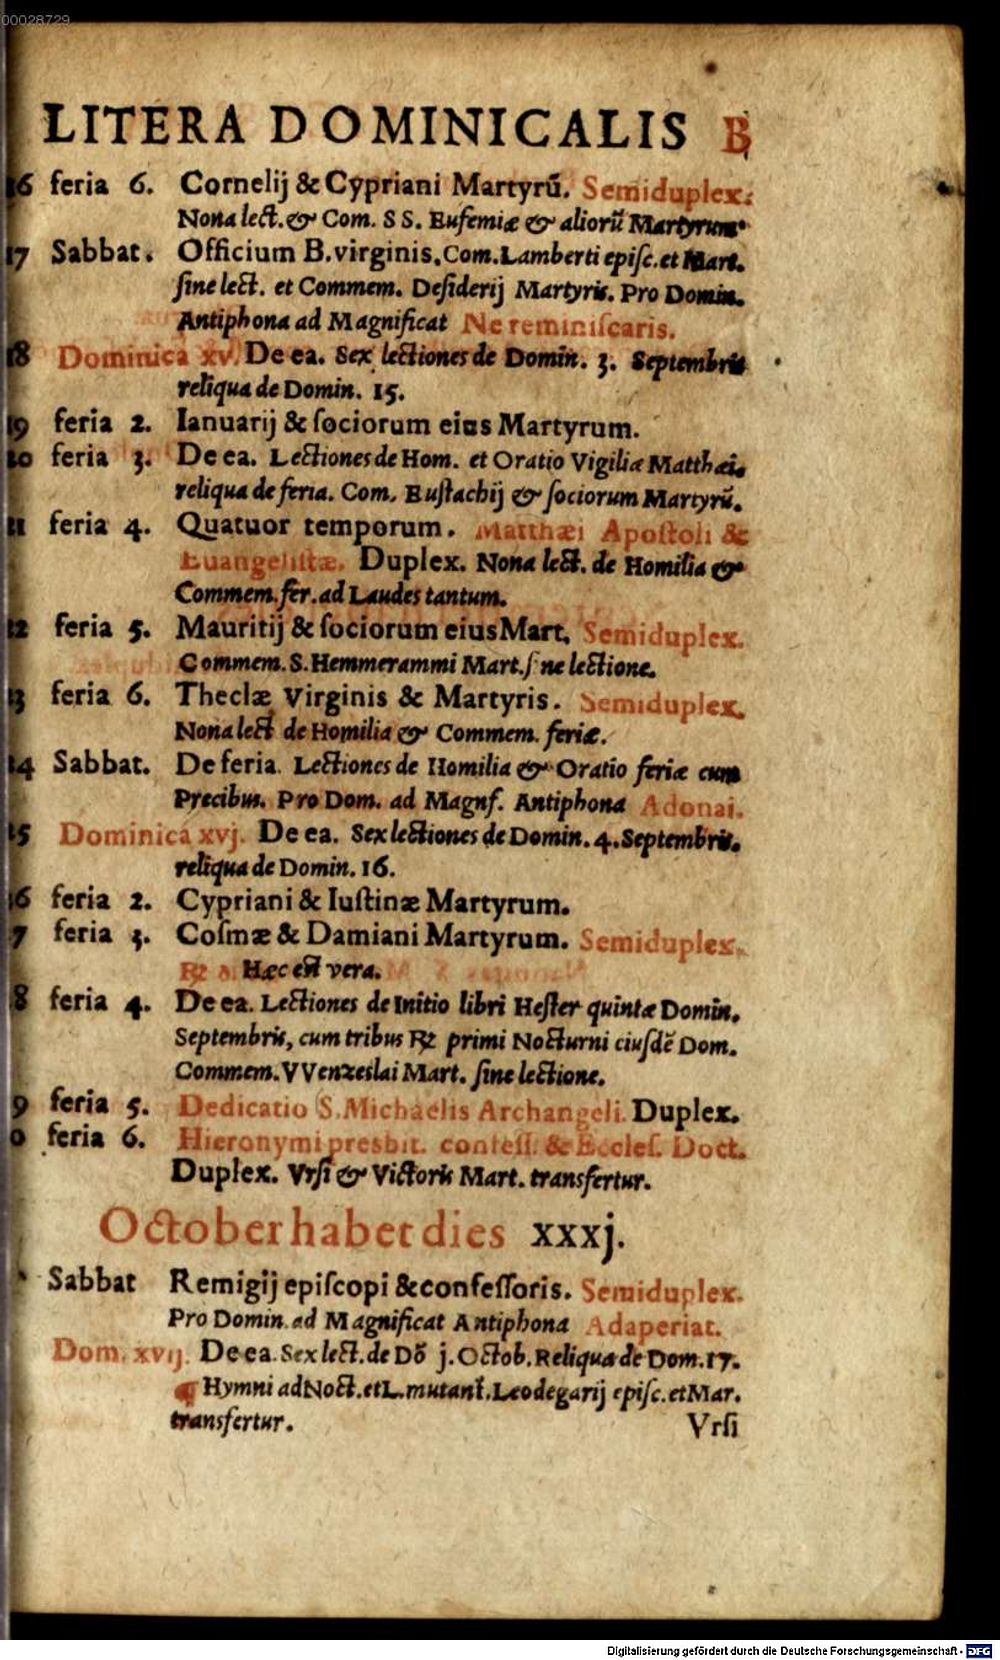 00028729
LITERA DOMINICALIS B
16 feria 6. Cornelij & Cypriani Martyrũ. Semiduplex.
Nona lect. & Com. SS. Eufemiæ & aliorũ Martyrum.
17 Sabbat. Officium B. virginis. Com. Lamberti episc. et Mart.
sine lect. et Commem. Desiderij Martyris. Pro Domin.
Antiphona ad Magnificat Ne reminiscaris.
18 Dominica xv. De ea. Sex lectiones de Domin. 3. Septembris
reliqua de Domin. 15.
19 feria 2. Ianuarij & sociorum eius Martyrum.
20 feria 3. De ea. Lectiones de Hom. et Oratio Vigiliæ Matthæi.
reliqua de feria. Com. Eustachij & sociorum Martyrũ.
21 feria 4. Quatuor temporum. Matthæi Apostoli &
Euangelistæ. Duplex. Nona lect. de Homilia &
Commem. fer. ad Laudes tantum.
12 feria 5. Mauritij & sociorum eius Mart. Semiduplex.
Commem. S. Hemmerammi Mart. s ne lectione.
13 feria 6. Theclæ Virginis & Martyris. Semiduplex.
Nona lect de Homilia & Commem. feriæ.
14 Sabbat. De feria. Lectiones de Homilia & Oratio feriæ cum
Precibus. Pro Dom. ad Magnf. Antiphona Adonai.
15 Dominica xvj. De ea. Sex lectiones de Domin. 4. Septembris.
reliqua de Domin. 16.
16 feria 2. Cypriani & Iustinæ Martyrum.
7 feria 3. Cosmæ & Damiani Martyrum. Semiduplex.
℞ 8. Hæc est vera.
8 feria 4. De ea. Lectiones de Initio libri Hester quintæ Domin.
Septembris, cum tribus ℞ primi Nocturni eiusdẽ Dom.
Commem. VVenzeslai Mart. sine lectione.
9 feria 5. Dedicatio S. Michaelis Archangeli. Duplex.
0 feria 6. Hieronymi presbit. confess. & Eccles. Doct.
Duplex. Vrsi & Victoris Mart. transfertur.
October habet dies xxxj.
Sabbat Remigij episcopi & confessoris. Semiduplex.
Pro Domin. ad Magnificat Antiphona Adaperiat.
Dom. xvij. De ea. Sex lect. de Dõ j. Octob. Reliqua de Dom. 17.
¶ Hymni ad Noct. et L. mutant. Leodegarij episc. et Mar.
transfertur. Vrsi
Digitalisierung gefördert durch die Deutsche Forschungsgemeinschaft - DFG